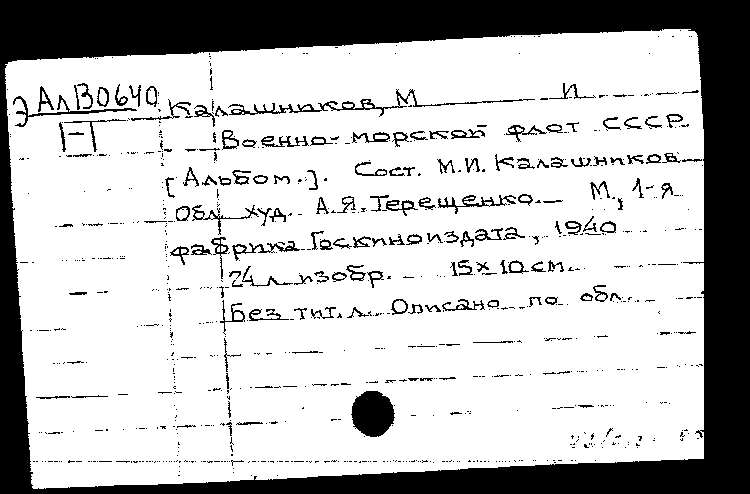 Э АлВ0640 Калашников, М И
|-| Военно-морской флот СССР
[Альбом.]. Сост. М.И. Калашников.
Обл. худ. А.Я. Терещенко.— М., 1-я
фабрика Госкиноиздата, 1940
24 л. изобр. 15x10 см.
Без тит. л. Описано по обл.